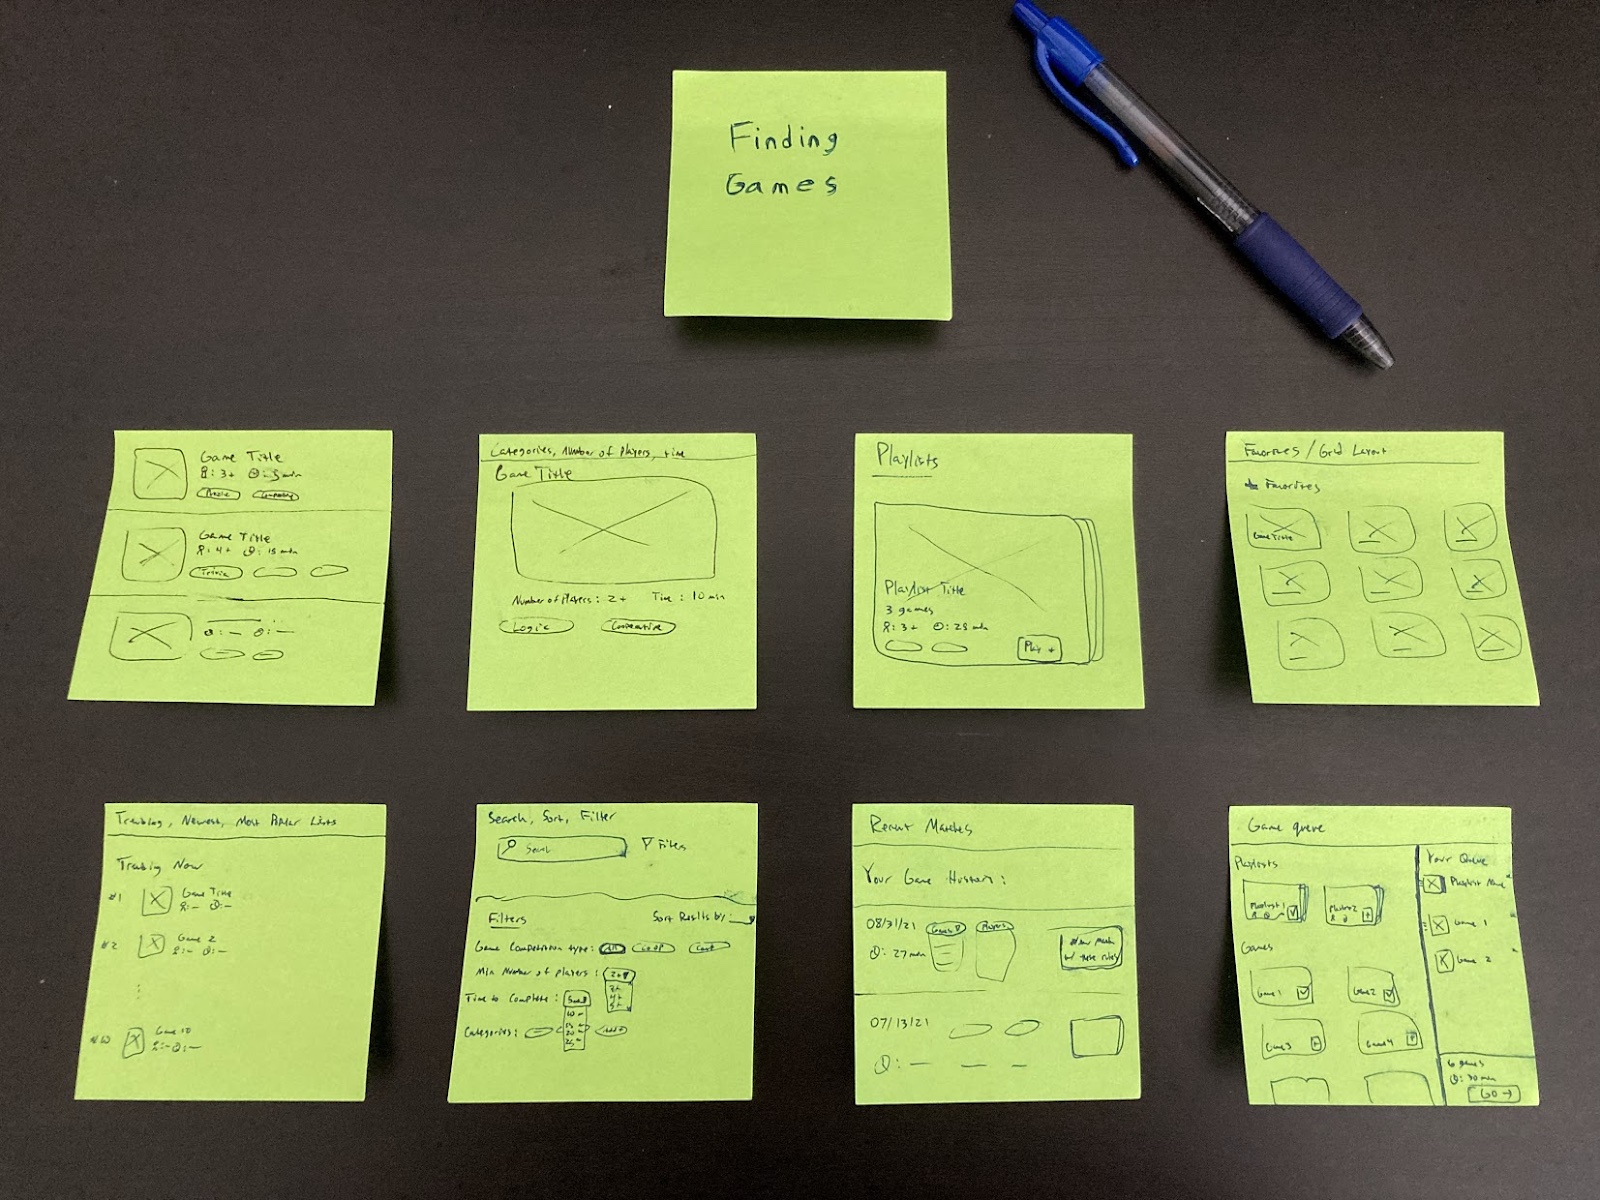 Finding
Games
Game Title
: 3+ : 5 min
Game Title
: 4+ : 15 min
Trivia
: — : —
Categories, Number of Players, time
Game Title
Number of Players: 2+ Time: 10 min
Logic Cooperative
Playlists
Playlist Title
3 games
: 3+ : 28 min
Play
Favorites / Grid Layout
Favorites
Game Title
Trending, Newest, Most Popular Lists
Trending Now
#1 Game Title
: — : —
#2 Game 2
: — : —
#10 Game 10
: — : —
Search, Sort, Filter
Search Filters
Filters Sort Results by:
Game Competition type: All Co-op
Min Number of players: 2+
2+
4+
5+
Time to Complete: 5min
10
15
20
25
Categories: Add +
Recent Matches
Your Game History:
08/31/21 Games Players
: 27 min
New Match
w/ these rules
07/13/21
: — — —
Game queue
Playlists
Playlist 1 Playlist 2
Games
Game 1 Game 2
Game 3 Game 4
Your Queue
Playlist Name
Game 1
Game 2
6 games
: 70 min
GO →